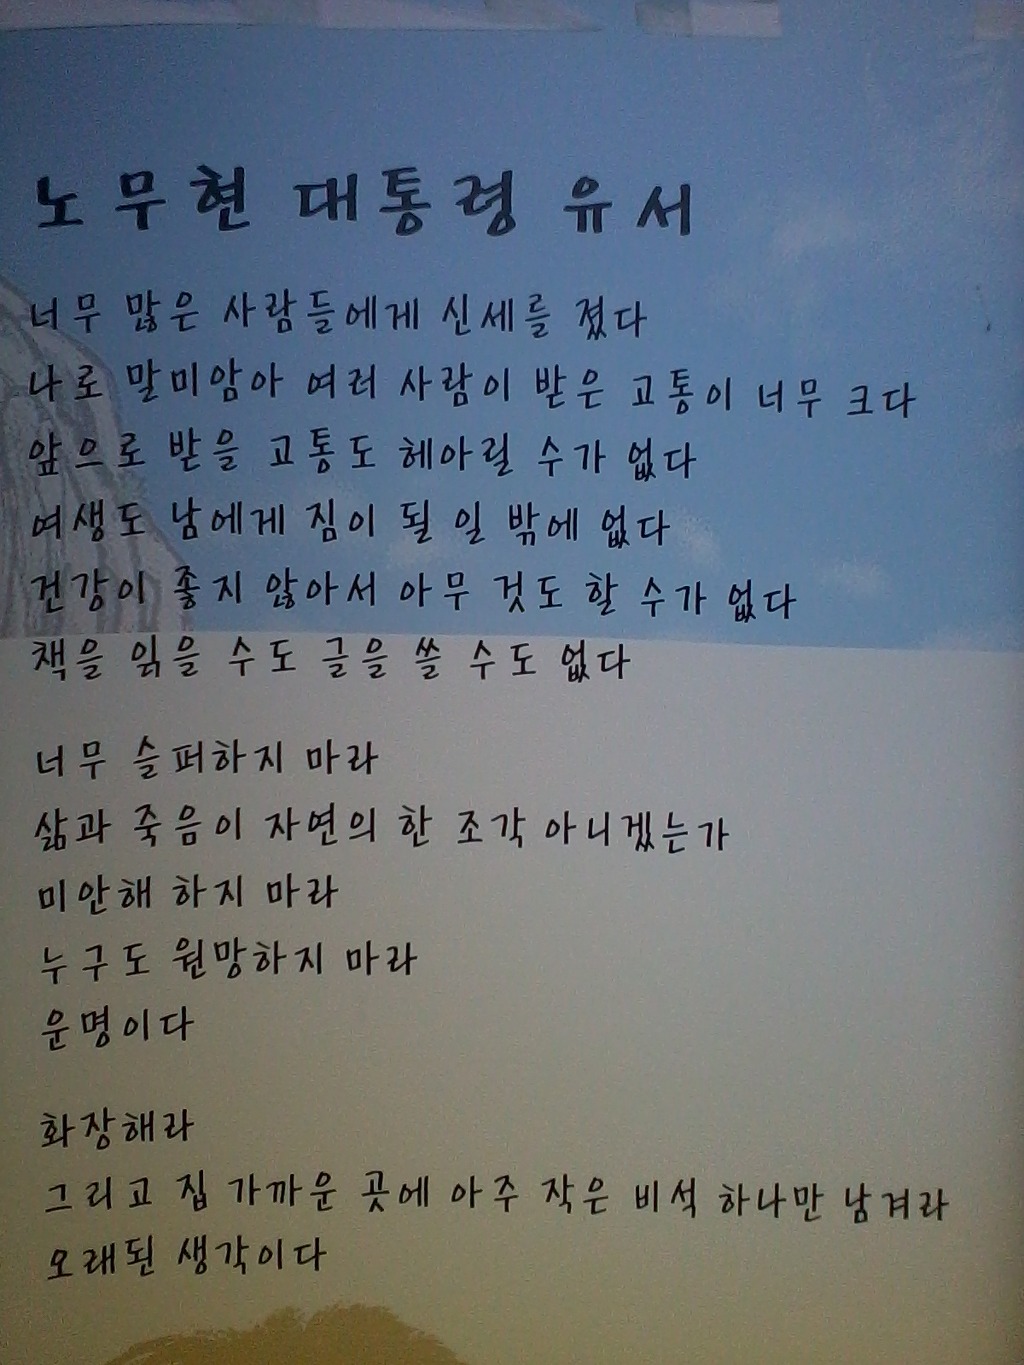 노무현 대통령 유서
너무 많은 사람들에게 신세를 졌다
나로 말미암아 여러 사람이 받은 고통이 너무 크다
앞으로 받을 고통도 헤아릴 수가 없다
여생도 남에게 짐이 될 일 밖에 없다
건강이 좋지 않아서 아무 것도 할 수가 없다
책을 읽을 수도 글을 쓸 수도 없다
너무 슬퍼하지 마라
삶과 죽음이 자연의 한 조각 아니겠는가
미안해 하지 마라
누구도 원망하지 마라
운명이다
화장해라
그리고 집 가까운 곳에 아주 작은 비석 하나만 남겨라
오래된 생각이다